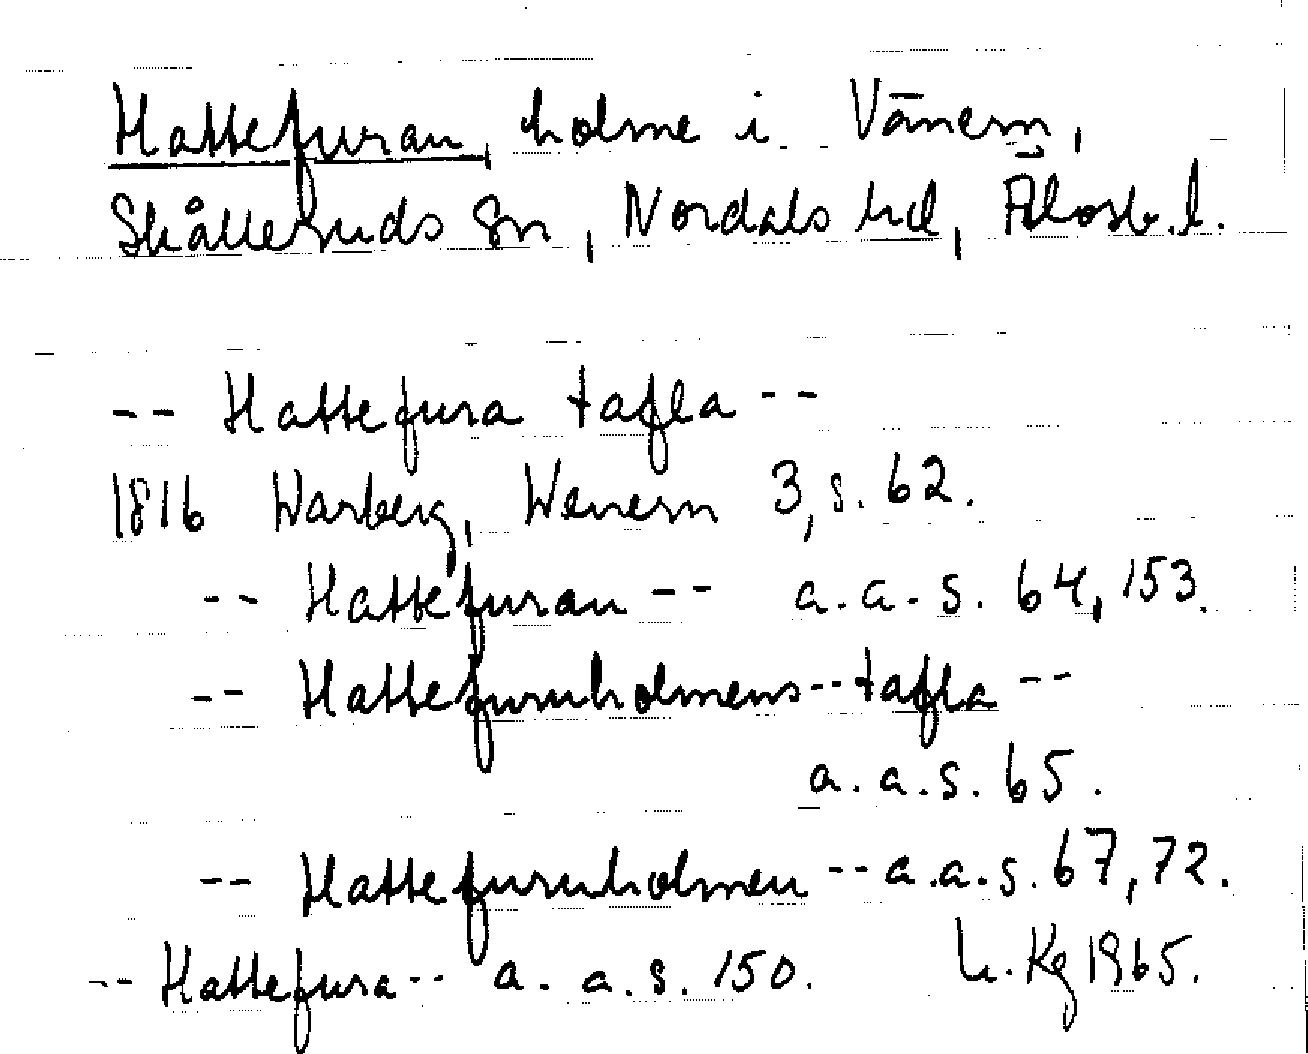 Hattefuran, holme i Vänern,
Skålleruds sn, Nordals hd, Älvsb. l.
-- Hattefura tafla --
1816 Warberg, Wenern 3, s. 62.
-- Hattefuran -- a. a. s. 64, 153.
-- Hattefuruholmens -- tafla --
a. a. s. 65.
-- Hattefuruholmen -- a. a. s. 67, 72.
-- Hattefura -- a. a. s. 150. L. Kg 1965.